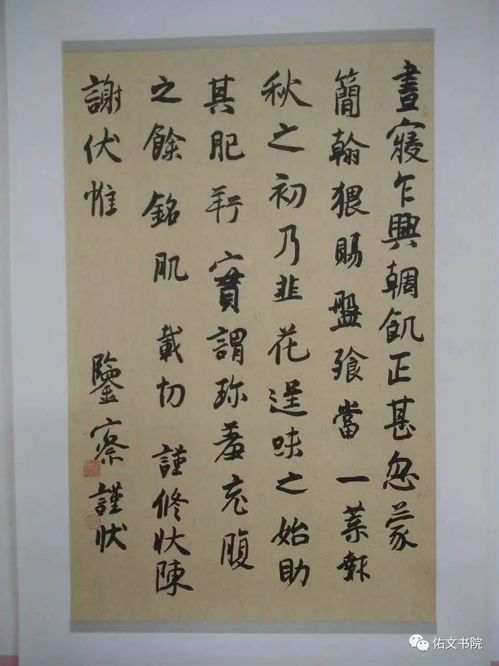 晝寢乍興輖飢正甚忽蒙
簡翰猥賜盤飧當一葉報
秋之初乃韭花逞味之始助
其肥羜實謂珍羞充腹
之餘銘肌載切謹修狀陳
謝伏惟 鑒察謹狀
佑文书院